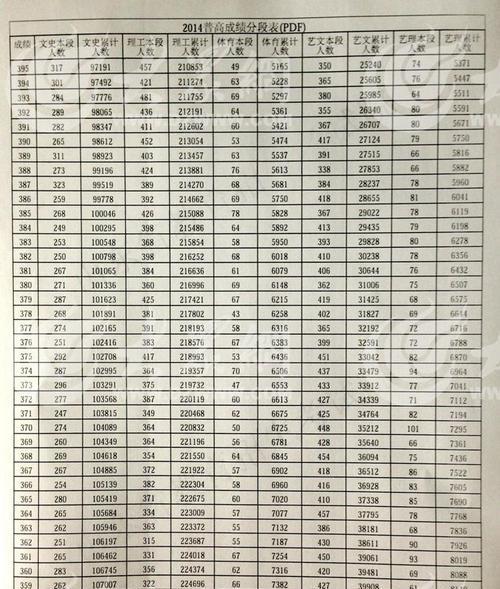 2014普高成绩分段表(PDF)
成绩 文史本段人数 文史累计人数 理工本段人数 理工累计人数 体育本段人数 体育累计人数 艺文本段人数 艺文累计人数 艺理本段人数 艺理累计人数
395 317 97191 457 210853 49 5165 350 25240 74 5371
394 301 97492 421 211274 63 5228 365 25605 76 5447
393 284 97776 481 211755 69 5297 380 25985 64 5511
392 289 98065 436 212191 64 5361 355 26340 80 5591
391 282 98347 411 212602 60 5421 367 26707 80 5671
390 265 98612 452 213054 53 5474 417 27124 79 5750
389 311 98923 403 213457 63 5537 391 27515 66 5816
388 273 99196 424 213881 76 5613 338 27853 66 5882
387 323 99519 389 214270 68 5681 384 28237 78 5960
386 259 99778 392 214662 69 5750 418 28655 81 6041
385 268 100046 426 215088 78 5828 367 29022 78 6119
384 249 100295 398 215486 64 5892 413 29435 79 6198
383 253 100548 368 215854 58 5950 393 29828 80 6278
382 250 100798 398 216252 68 6018 410 30238 78 6356
381 267 101065 384 216636 61 6079 406 30644 76 6432
380 271 101336 360 216996 69 6148 362 31006 75 6507
379 287 101623 425 217421 67 6215 419 31425 68 6575
378 268 101891 381 217802 43 6258 402 31827 69 6644
377 274 102165 391 218193 58 6316 365 32192 72 6716
376 251 102416 383 218576 67 6383 399 32591 72 6788
375 292 102708 417 218993 53 6436 451 33042 82 6870
374 287 102995 364 219357 70 6506 437 33479 94 6964
373 296 103291 375 219732 47 6553 433 33912 77 7041
372 277 103568 387 220119 60 6613 427 34339 71 7112
371 247 103815 349 220468 62 6675 425 34764 82 7194
370 274 104089 364 220832 50 6725 448 35212 101 7295
369 260 104349 364 221196 56 6781 428 35640 66 7361
368 269 104618 354 221550 64 6845 454 36094 75 7436
367 267 104885 372 221922 57 6902 418 36512 86 7522
366 254 105139 382 222304 58 6960 416 36928 83 7605
365 280 105419 371 222675 60 7020 410 37338 85 7690
364 265 105684 334 223009 57 7077 457 37795 78 7768
363 262 105946 363 223372 55 7132 386 38181 68 7836
362 251 106197 315 223687 55 7187 430 38611 90 7926
361 265 106462 331 224018 67 7254 450 39061 93 8019
360 283 106745 356 224374 62 7316 420 39481 69 8088
359 262 107007 322 224696 66 7382 427 39908 61